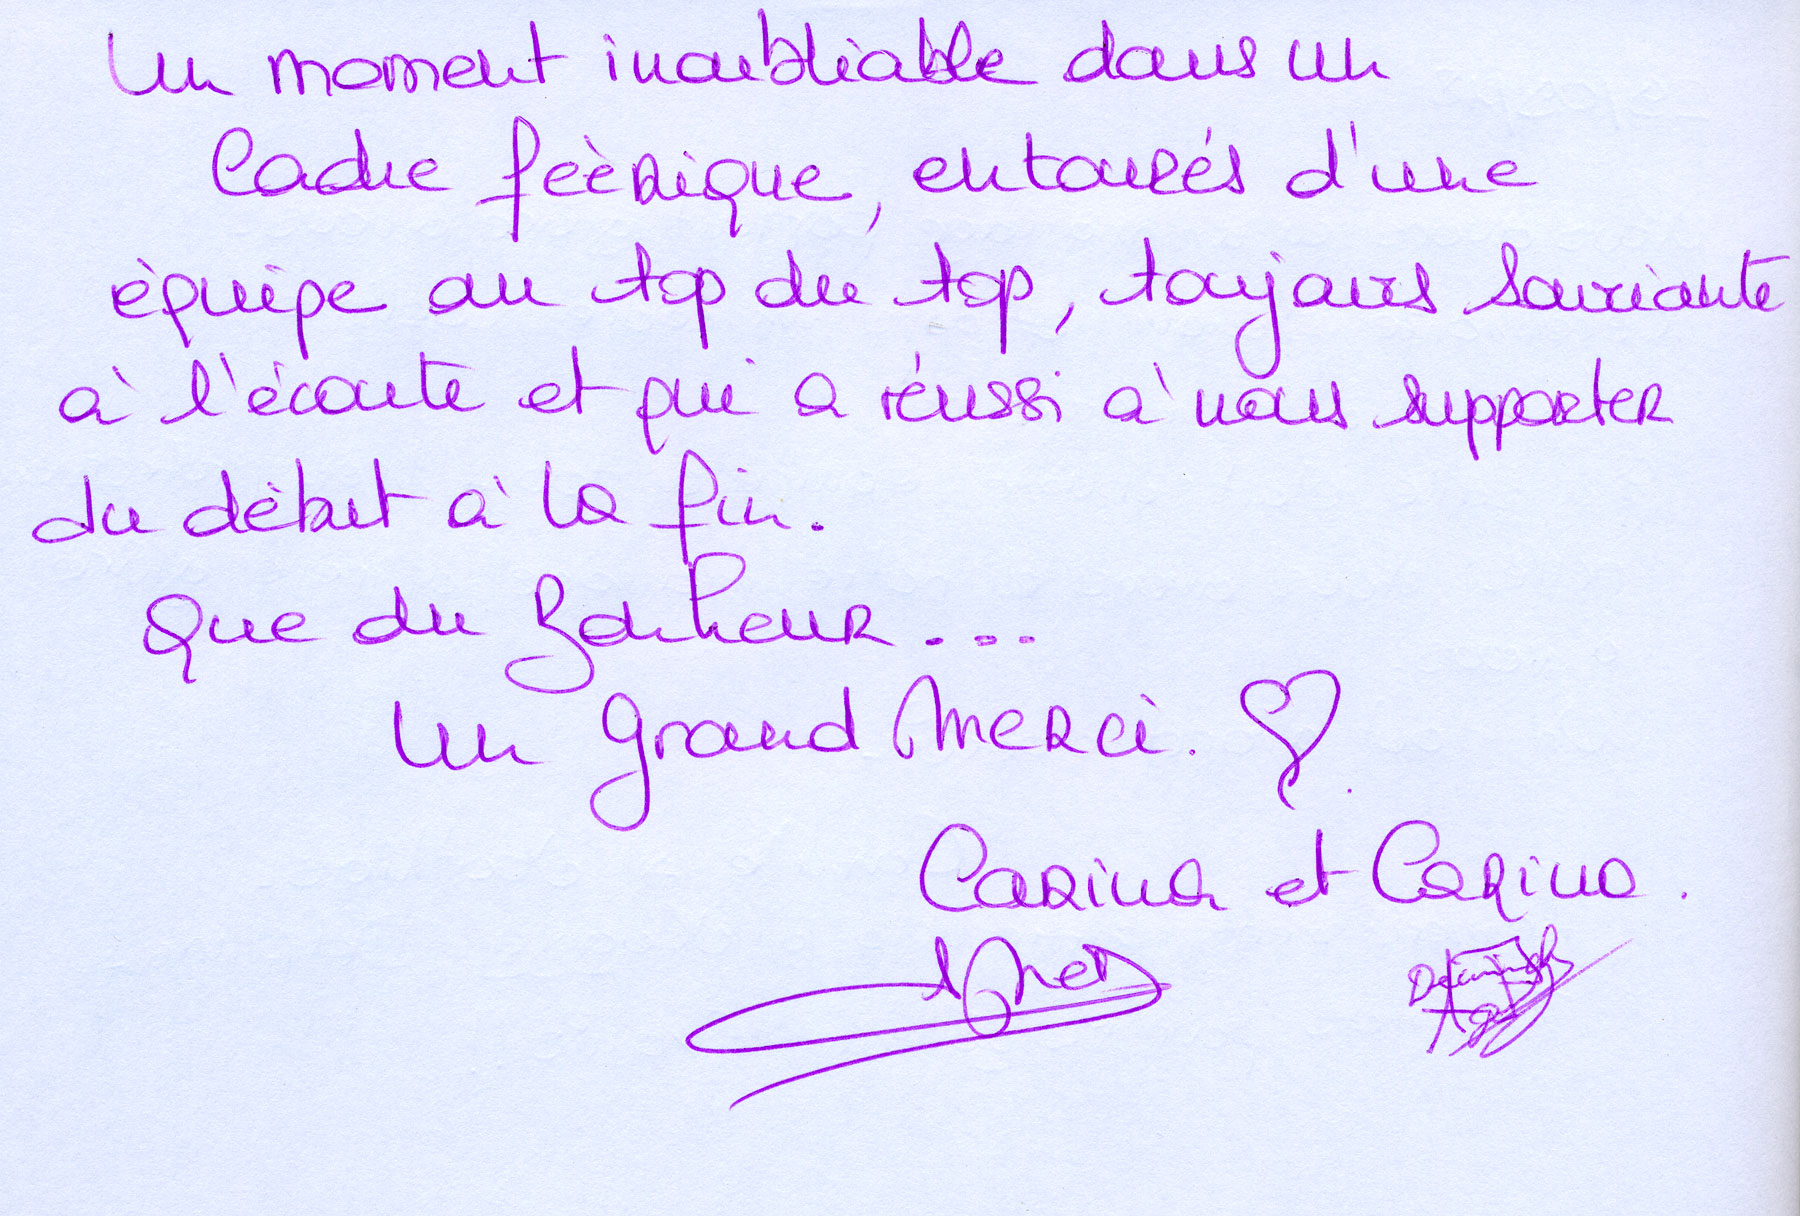 Un moment inoubliable dans un
Cadre féèrique, entourés d'une
équipe au top du top, toujours souriante
à l'écoute et qui a réussi à nous supporter
du début à la fin.
Que du Bonheur...
Un Grand Merci.
Carina et Carina.